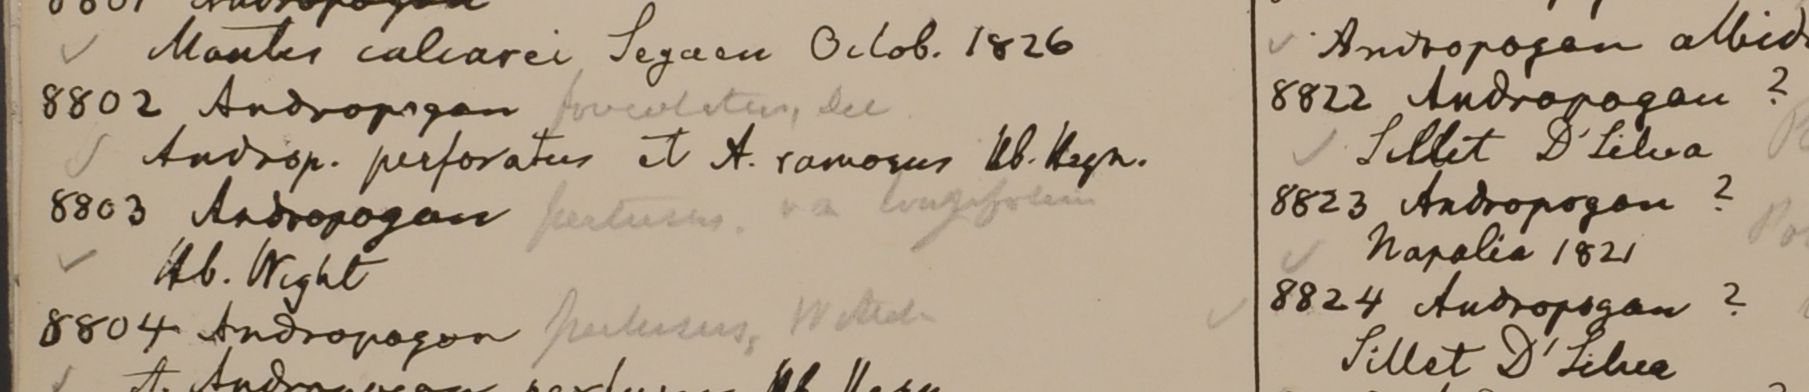 8801 Andropogon
Montes calcarei Segaen Octob. 1826
8802 Andropogon foveolatus, Del
Androp. perforatus et A. ramosus Hb. Heyn.
8803 Andropogon pertusus. va longifolia
Hb. Wight
8804 Andropogon pertusus, Willd
A. Andropogon pertusus Hb. Heyn
Andropogon albid
8822 Andropogon ?
Sillet D'Silva
8823 Andropogon ?
Napalia 1821
8824 Andropogon ?
Sillet D'Silva